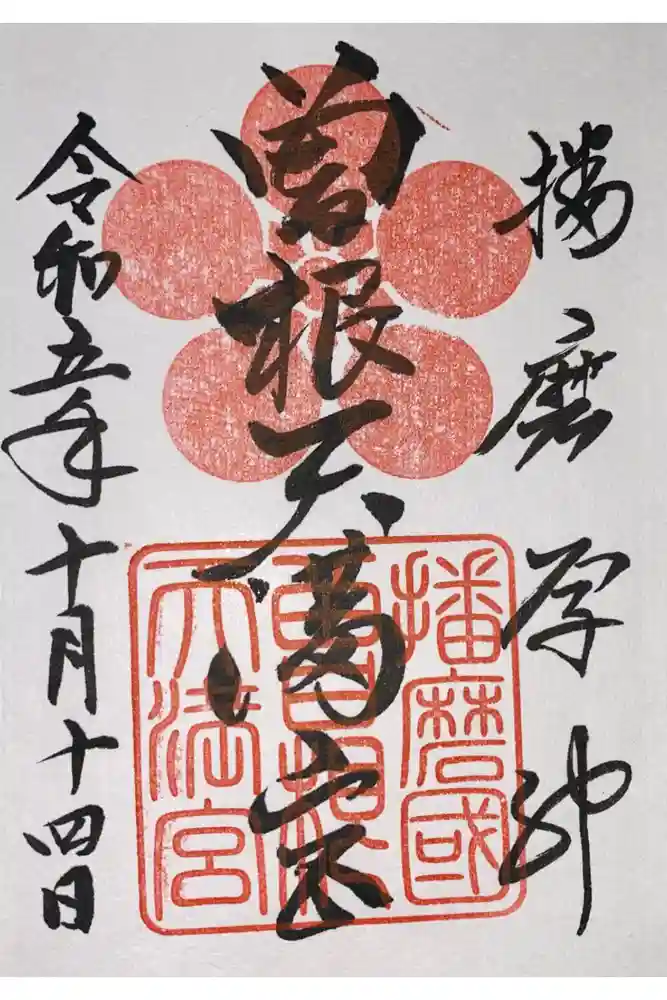 播磨
曽根天満宮
令和五年十月十四日
播磨國
曽根
天満宮